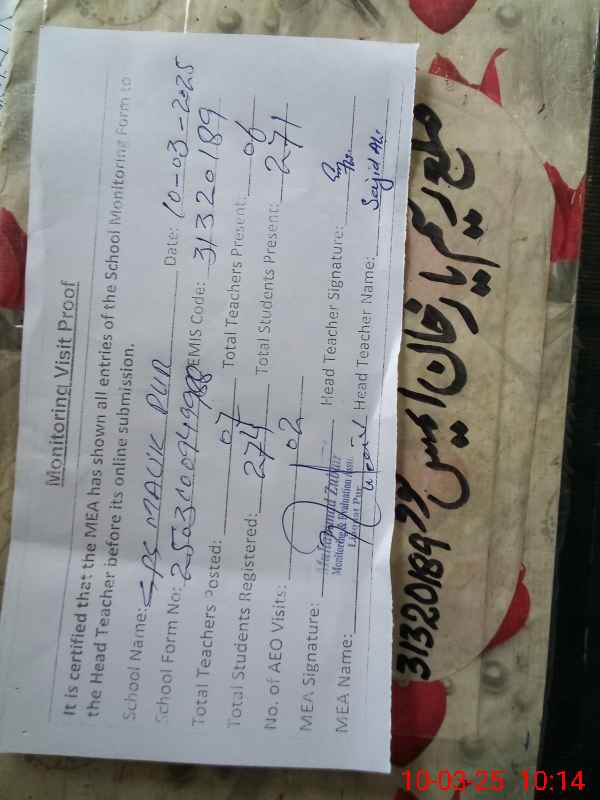 Monitoring Visit Proof
It is certified that the MEA has shown all entries of the School Monitoring Form to
the Head Teacher before its online submission.
School Name: GPS MALIK PUR Date: 10-03-2025
School Form No: EMIS Code: 31320189
Total Teachers Posted: 07 Total Teachers Present: 06
Total Students Registered: 274 Total Students Present: 271
No. of AEO Visits: 02
MEA Signature: Head Teacher Signature:
Muhammad Zubair
Monitoring & Evaluation Asstt.
Liaqat Pur
MEA Name: Head Teacher Name: Sajid Ali
ضلع رحیم یار خان ایمس کوڈ 31320189
10-03-25 10:14